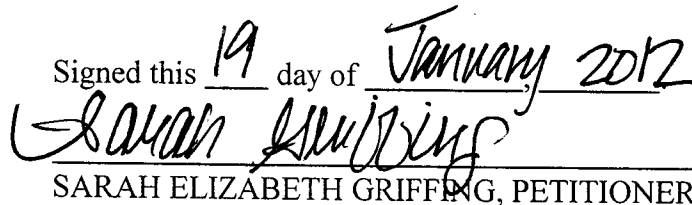 Signed this 19 day of January, 2012
Sarah Griffing
SARAH ELIZABETH GRIFFING, PETITIONER